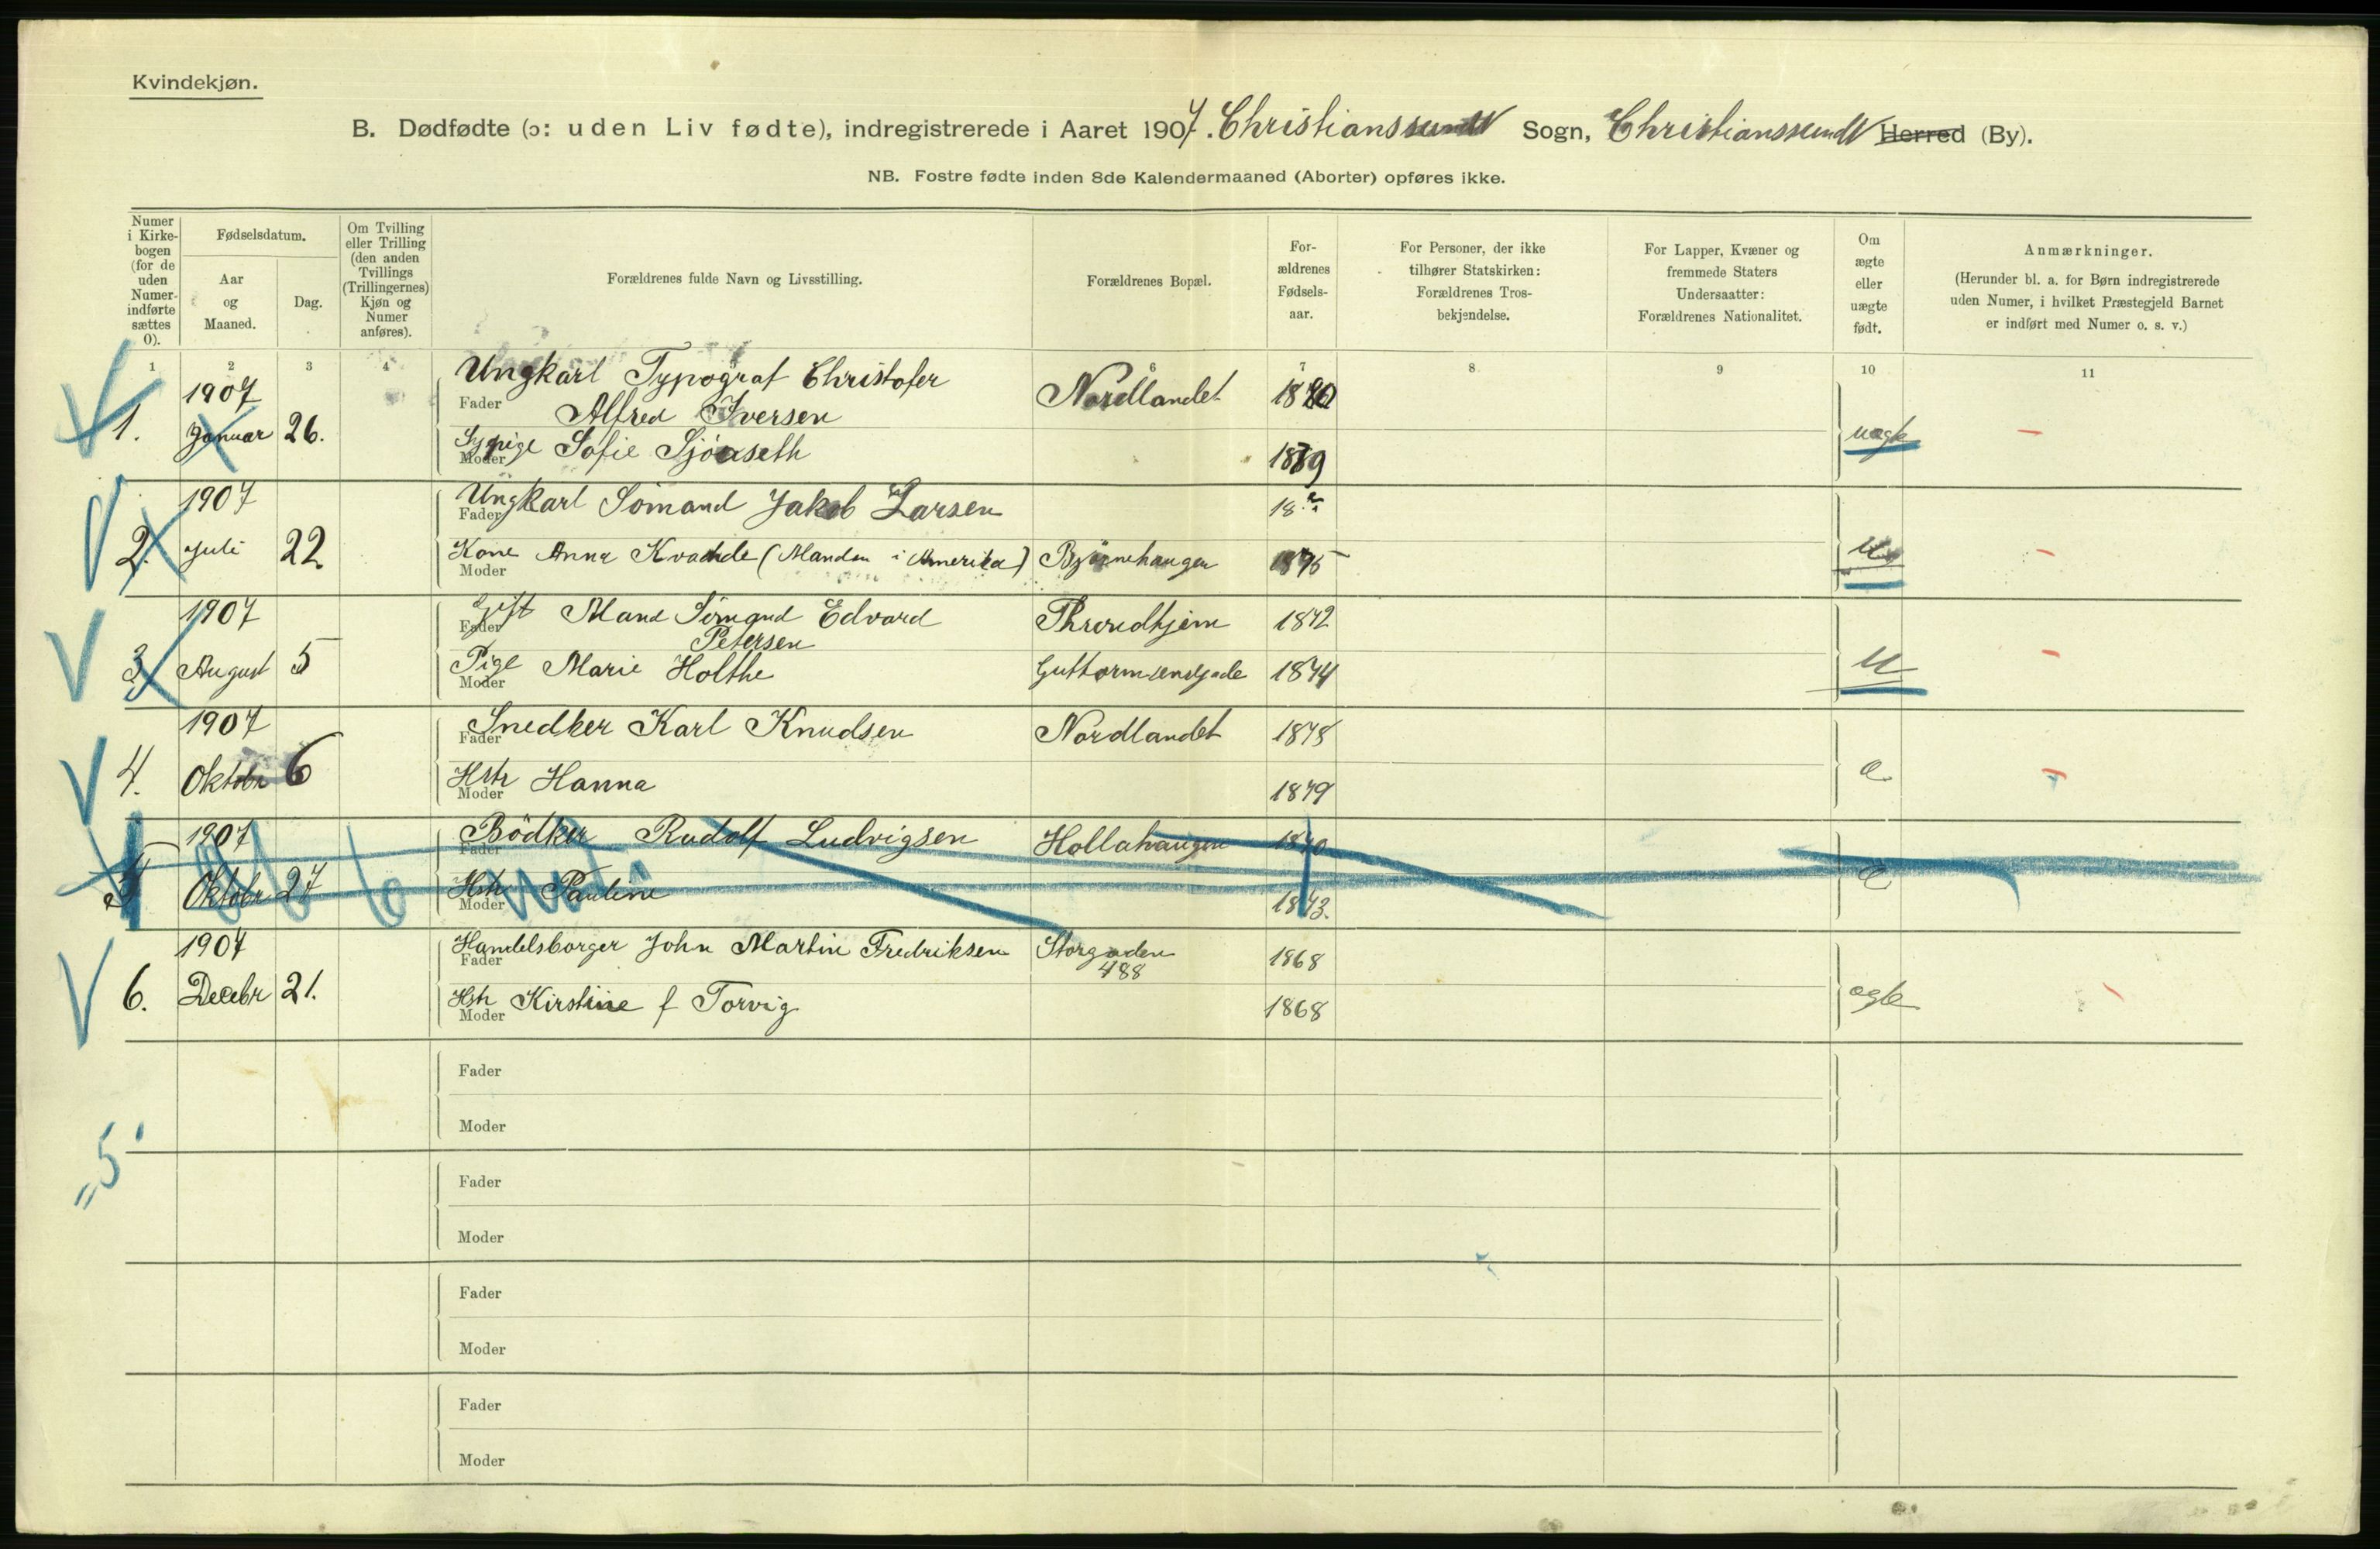 Kvindekjøn.
B. Dødfødte (ɔ: uden Liv fødte), indregistrerede i Aaret 1907. Christianssund Sogn, Christianssund Herred (By).
NB. Fostre fødte inden 8de Kalendermaaned (Aborter) opføres ikke.
Numer i Kirke-bogen (for de uden Numer-indførte sættes 0).
Fødselsdatum.
Aar og Maaned.
Dag.
Om Tvilling eller Trilling (den anden Tvillings (Trillingernes) Kjøn og Numer anføres).
Forældrenes fulde Navn og Livsstilling.
Forældrenes Bopæl.
For-ældrenes Fødsels-aar.
For Personer, der ikke tilhører Statskirken: Forældrenes Tros-bekjendelse.
For Lapper, Kvæner og fremmede Staters Undersaatter: Forældrenes Nationalitet.
Om ægte eller uægte født.
Anmærkninger.
(Herunder bl. a. for Børn indregistrerede uden Numer, i hvilket Præstegjeld Barnet er indført med Numer o. s. v.)
1 2 3 4 6 7 8 9 10 11
1907 Ungkarl Typograf Christofer
Fader Alfred Iversen Nordlandet 1880
1. Januar 26. Moder Sypige Sofie 1889 uægte
1907 Fader Ungkarl Sømand Jakob Larsen 18
2. Juli 22. Moder Kone Anna (Manden i Amerika) Bjørnehaugen 1875 U
1907 Fader Gift Mand Sømand Edvard Throndhjem 1872
Petersen
3. August 5 Moder Pige Marie Holthe Guttormsensgade 1874 U
1907 Fader Snedker Karl Knudsen Nordlandet 1878
4. Oktobr 6 Moder Hstr Hanna 1879
1907 Fader Bödker Rudolf Ludvigsen Hollahaugen 1870
5 Oktobr 27 Moder Hstr Pauline 1873.
1907 Fader Handelsborger John Martin Fredriksen Storgaden 1868
488
6. Decebr 21. Moder Hstr Kirstine f Torvig 1868 ægte
Fader
Moder
5
Fader
Moder
Fader
Moder
Fader
Moder